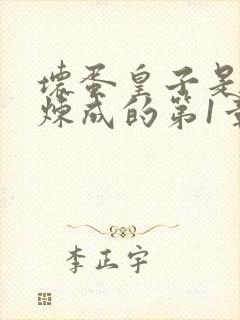 坏蛋皇子是
炼成的第1章
李正宇